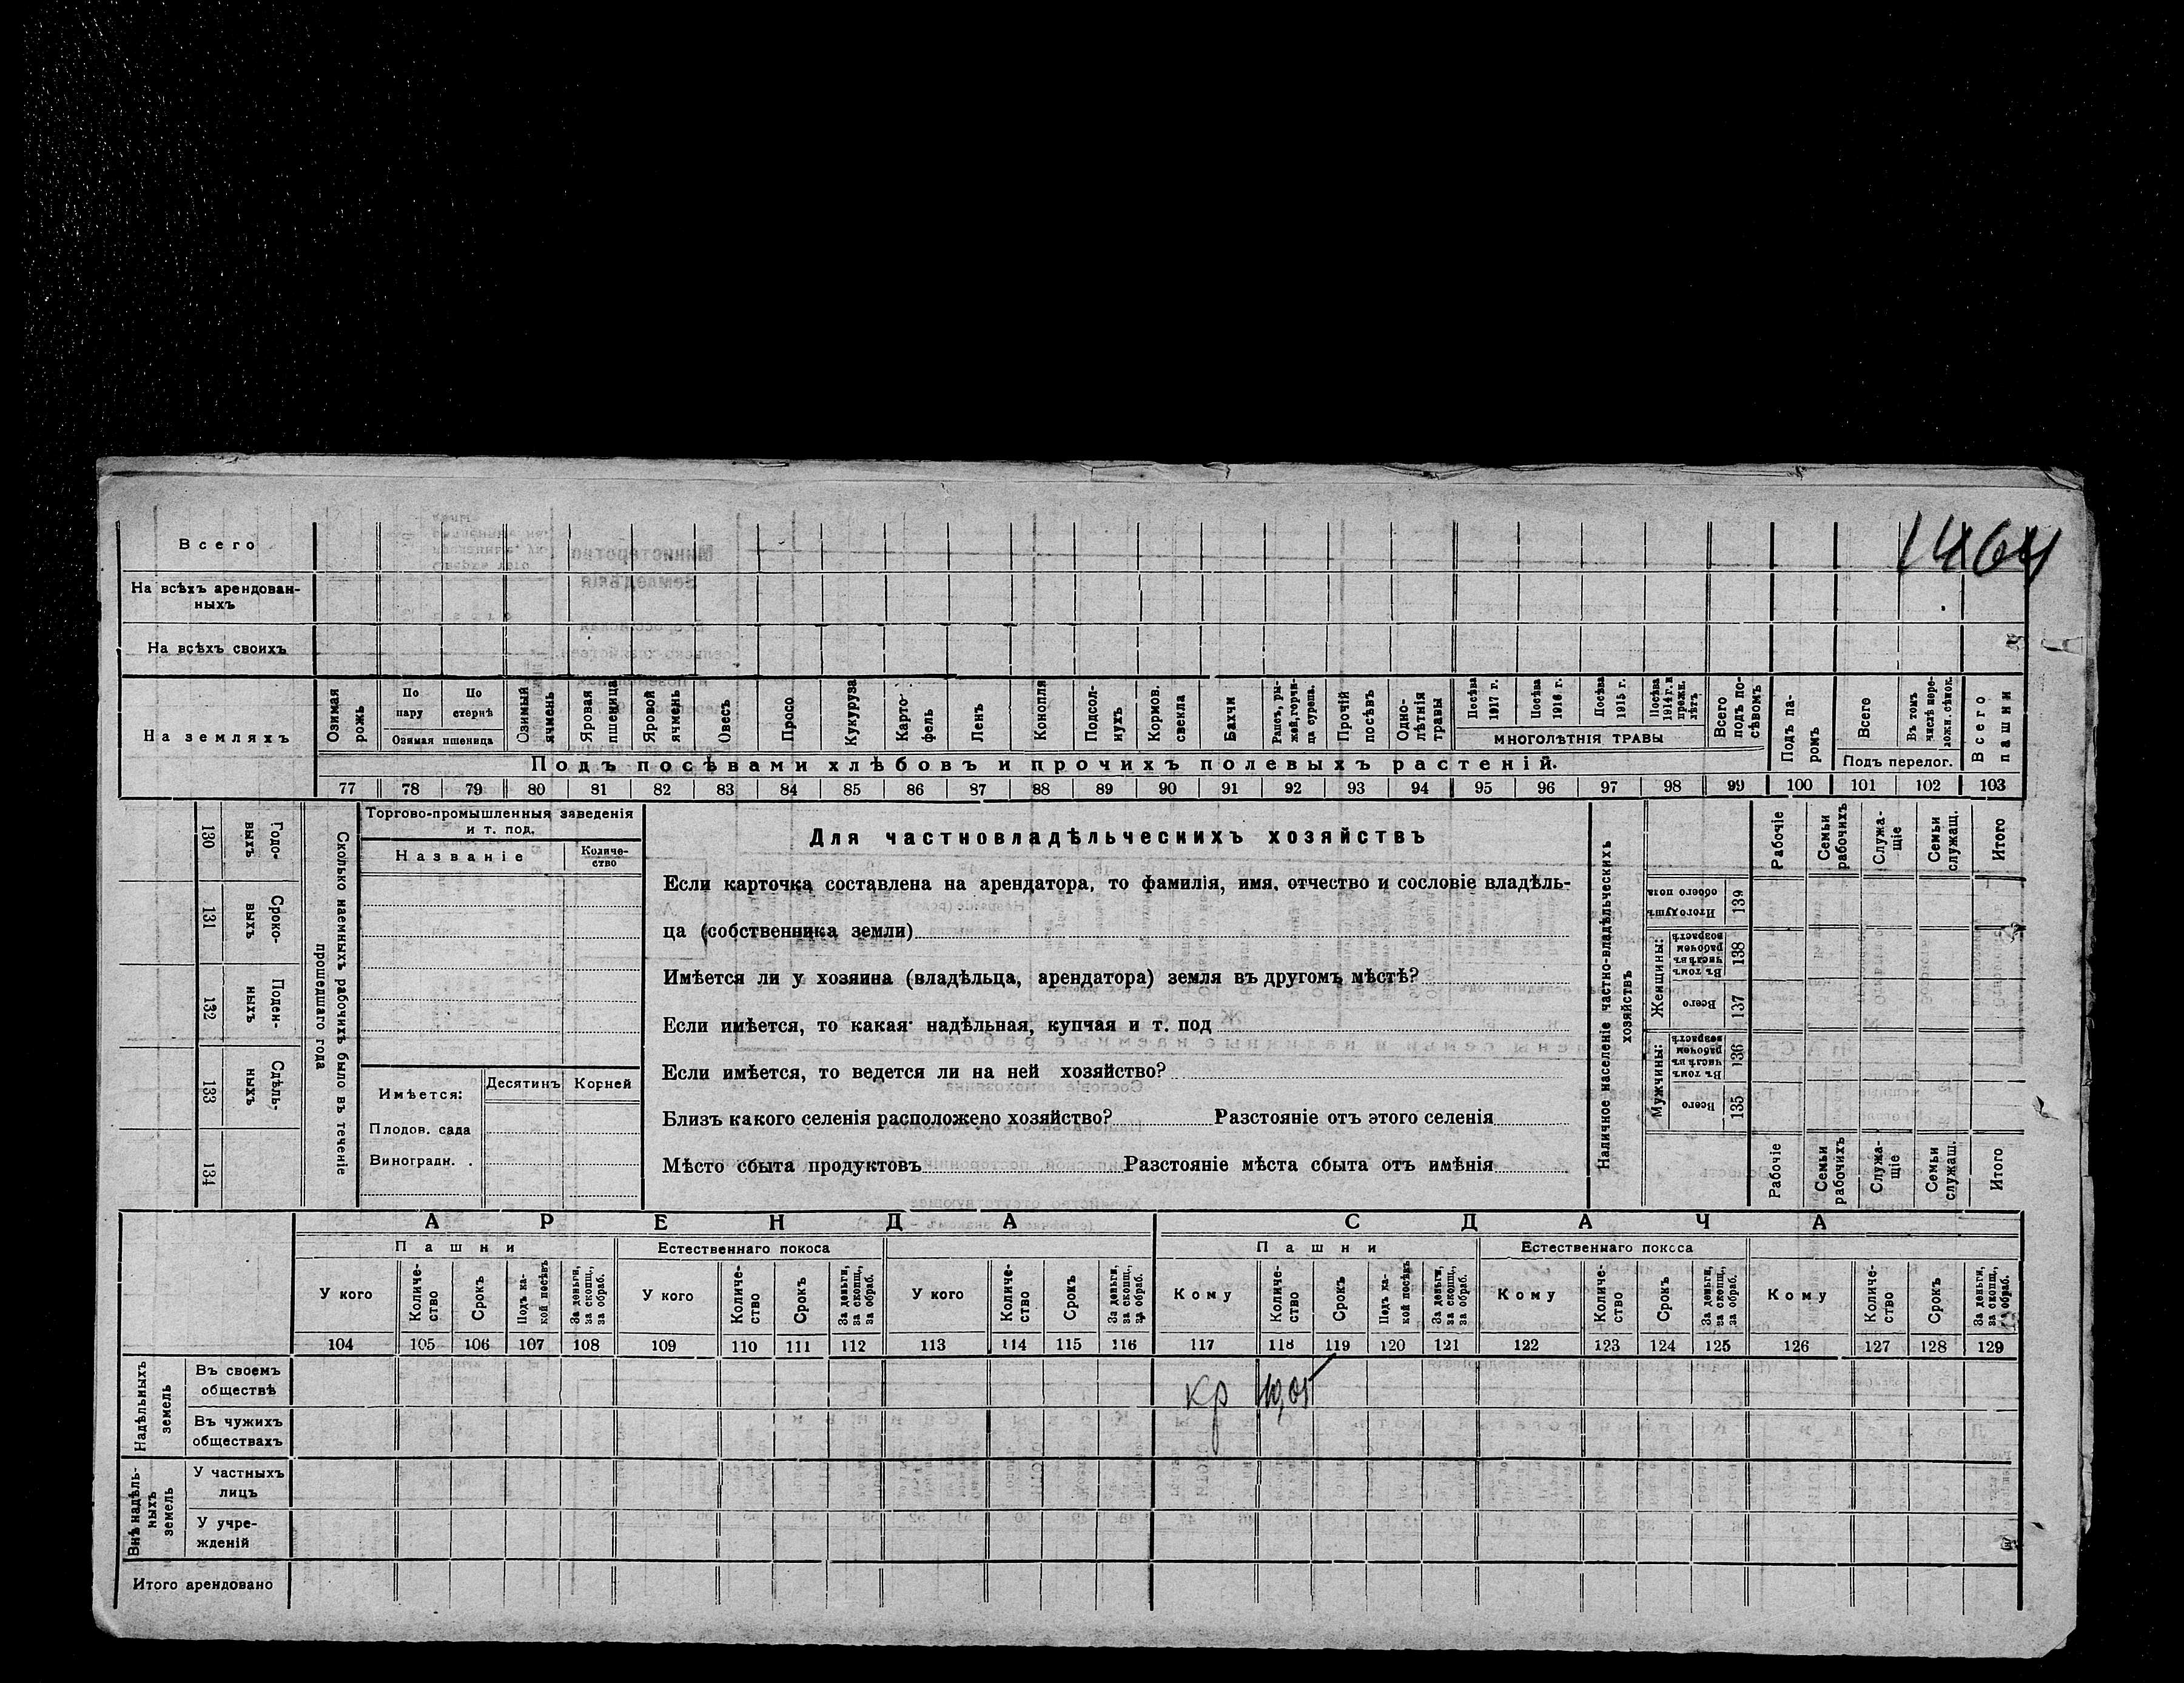 1464
Всего
На всѣхъ арендован-
ныхъ
На всѣхъ своихъ
На земляхъ
Озимая рожь
По пару
По стернѣ
Озимая пшеница
Озимый ячмень
Яровая пшеница
Яровой ячмень
Овесъ
Просо
Кукуруза
Карто-
фель
Ленъ
Конопля
Подсол-
нухъ
Кормов. свекла
Бахчи
Рапсъ, ры-
жей, горчи-
ца сурепа.
Прочій посѣвъ
Одно-
лѣтнія травы
Посѣва 1917 г.
Посѣва 1916 г.
Посѣва 1915 г.
Посѣва 1914 г. и прежн. лѣтъ
МНОГОЛѢТНІЯ ТРАВЫ
Всего подъ по-
сѣвомъ
Подъ па-
ромъ
Всего
Въ томъ числѣ пере-
ложн. сѣнок.
Подъ перелог.
Всего пашни
Подъ посѣвами хлѣбовъ и прочихъ полевыхъ растеній.
77 78 79 80 81 82 83 84 85 86 87 88 89 90 91 92 93 94 95 96 97 98 99 100 101 102 103
130 Годо-
выхъ
131 Сроко-
выхъ
132 Поден-
ныхъ
133 Сдѣль-
ныхъ
134
Сколько наемныхъ рабочихъ было въ теченіе
прошедшаго года
Торгово-промышленныя заведенія
и т. под.
Названіе
Количе-
ство
Имѣется:
Десятинъ
Корней
Плодов. сада
Виноградн. .
Для частновладѣльческихъ хозяйствъ
Если карточка составлена на арендатора, то фамилія, имя, отчество и сословіе владѣль-
ца (собственника земли)
Имѣется ли у хозяина (владѣльца, арендатора) земля въ другомъ мѣстѣ?
Если имѣется, то какая: надѣльная, купчая и т. под
Если имѣется, то ведется ли на ней хозяйство?
Близъ какого селенія расположено хозяйство? Разстояніе отъ этого селенія
Мѣсто сбыта продуктовъ Разстояніе мѣста сбыта отъ имѣнія
Наличное населеніе частно-владѣльческихъ
хозяйствъ
Рабочіе
Семьи рабочихъ
Служа-
щіе
Семьи служащ.
Итого
Итого душъ обоего пола 139
Женщины:
Въ томъ числѣ въ рабочемъ возрастѣ 138
Всего 137
Мужчины:
Въ томъ числѣ въ рабочемъ возрастѣ 136
Всего 135
Рабочіе
Семьи рабочихъ
Служа-
щіе
Семьи служащ.
Итого
АРЕНДА
СДАЧА
Пашни
Естественнаго покоса
Пашни
Естественнаго покоса
У кого
Количе-
ство
Срокъ
Подъ ка-
кой посѣвъ
За деньги, за скопщ., за обраб.
У кого
Количе-
ство
Срокъ
За деньги, за скопщ., за обраб.
У кого
Количе-
ство
Срокъ
За деньги, за скопщ., за обраб.
Кому
Количе-
ство
Срокъ
Подъ ка-
кой посѣвъ
За деньги, за скопщ., за обраб.
Кому
Количе-
ство
Срокъ
За деньги, за скопщ., за обраб.
Кому
Количе-
ство
Срокъ
За деньги, за скопщ., за обраб.
104 105 106 107 108 109 110 111 112 113 114 115 116 117 118 119 120 121 122 123 124 125 126 127 128 129
Надѣльныхъ земель
Въ своемъ
обществѣ
кр 10,05
Въ чужихъ
обществахъ
Внѣ надѣль-
ныхъ земель
У частныхъ
лицъ
У учре-
жденій
Итого арендовано